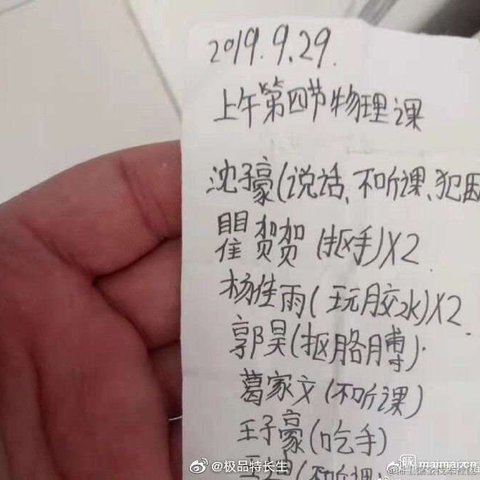 2019.9.29.
上午第四节物理课
沈子豪(说话、不听课、犯困
瞿贺贺(抠手)X2
杨佳雨(玩胶水)X2.
郭昊(抠胳膊).
葛家文(不听课)
王子豪(吃手)
(不听课
@极品特长生
maimai.cn